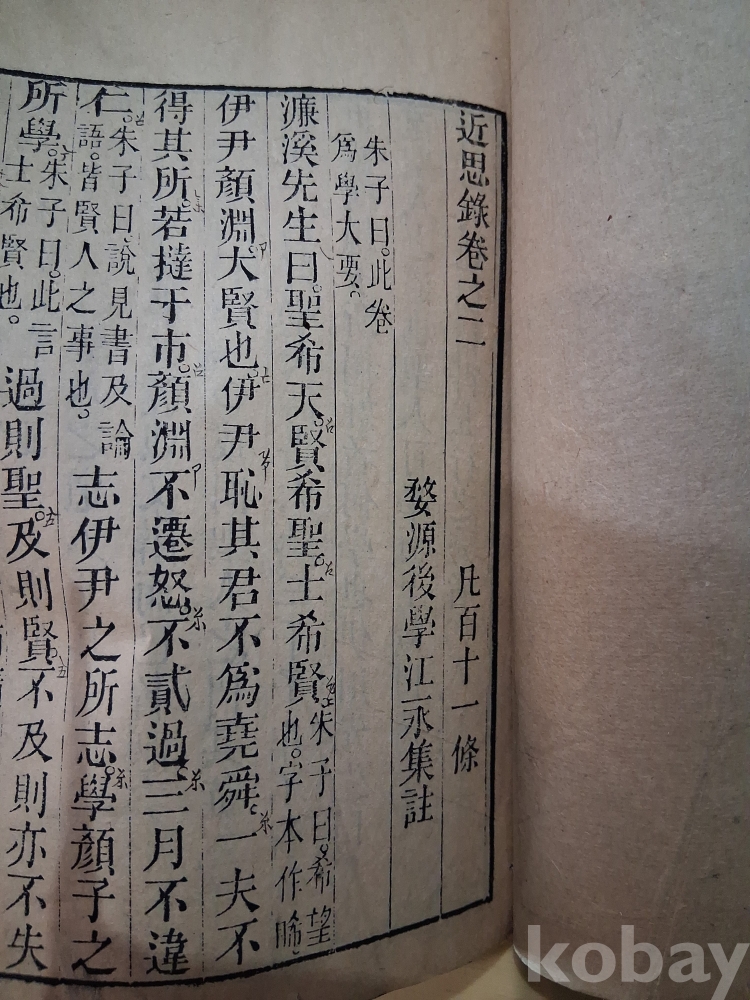 近思錄卷之二　凡百十一條
婺源後學江永集註
朱子曰此卷
爲學大要。
濂溪先生曰聖希天賢希聖士希賢朱子曰希望
也字本作睎
伊尹顏淵大賢也伊尹恥其君不爲堯舜一夫不
得其所若撻于市顏淵不遷怒不貳過三月不違
仁朱子曰說見書及論
語皆賢人之事也。志伊尹之所志學顏子之
所學朱子曰此言
士希賢也。過則聖及則賢不及則亦不失
kobay